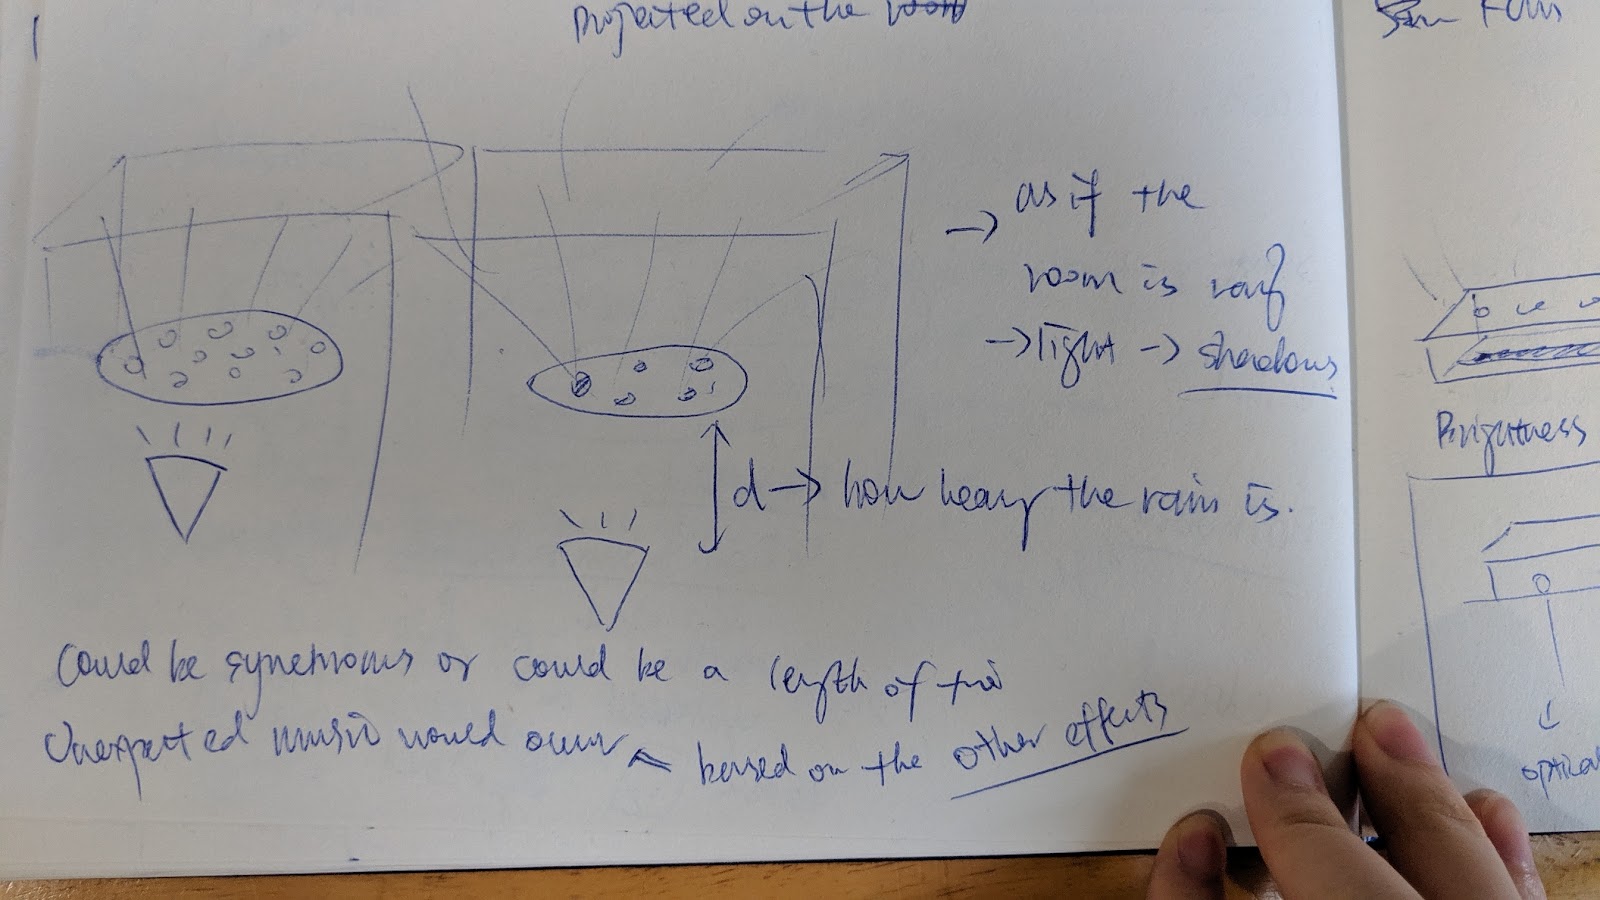 Projected on the
→ as if the
room is
→ light → shadows
d → how heavy the rain is.
Could be synchronous or could be a length of
Unexpected music would occur based on the other effects
Brightness
optical